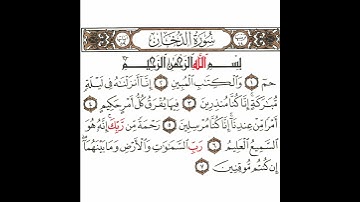 سُورَةُ الدُّخَانِ
بِسْمِ اللَّهِ الرَّحْمَٰنِ الرَّحِيمِ
حمٓ ١ وَالْكِتَٰبِ الْمُبِينِ ٢ إِنَّآ أَنزَلْنَٰهُ فِى لَيْلَةٍ
مُّبَٰرَكَةٍ إِنَّا كُنَّا مُنذِرِينَ ٣ فِيهَا يُفْرَقُ كُلُّ أَمْرٍ حَكِيمٍ ٤
أَمْرًا مِّنْ عِندِنَآ إِنَّا كُنَّا مُرْسِلِينَ ٥ رَحْمَةً مِّن رَّبِّكَ إِنَّهُ هُوَ
السَّمِيعُ الْعَلِيمُ ٦ رَبِّ السَّمَٰوَٰتِ وَالْأَرْضِ وَمَا بَيْنَهُمَآ
إِن كُنتُم مُّوقِنِينَ ٧